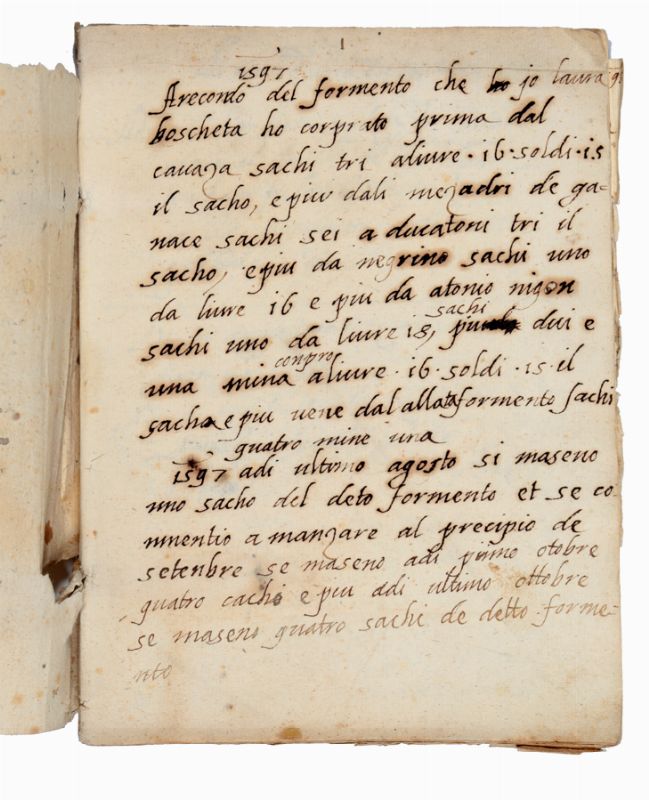 1
1597
Arecordo del formento che ho jo laura
boscheta ho corprato prima dal
cavaza sachi tri a livre · 16 · soldi · 15
il sacho, e piu dali mezadri de ga=
nace sachi sei a ducatoni tri il
sacho, e piu da negrino sachi uno
da livre 16 e piu da atonio nigon
sachi
sachi uno da livre 18, dui e
conpro
una mina a livre · 16 · soldi · 15 · il
sacho e piu vene dal formento sachi
quatro mine una
1597 adi ultimo agosto si maseno
uno sacho del deto formento et se co
mentio a manzare al precipio de
setenbre se maseno adi primo otobre
quatro cachi e piu adi ultimo ottobre
se maseno quatro sachi de detto forme=
nto